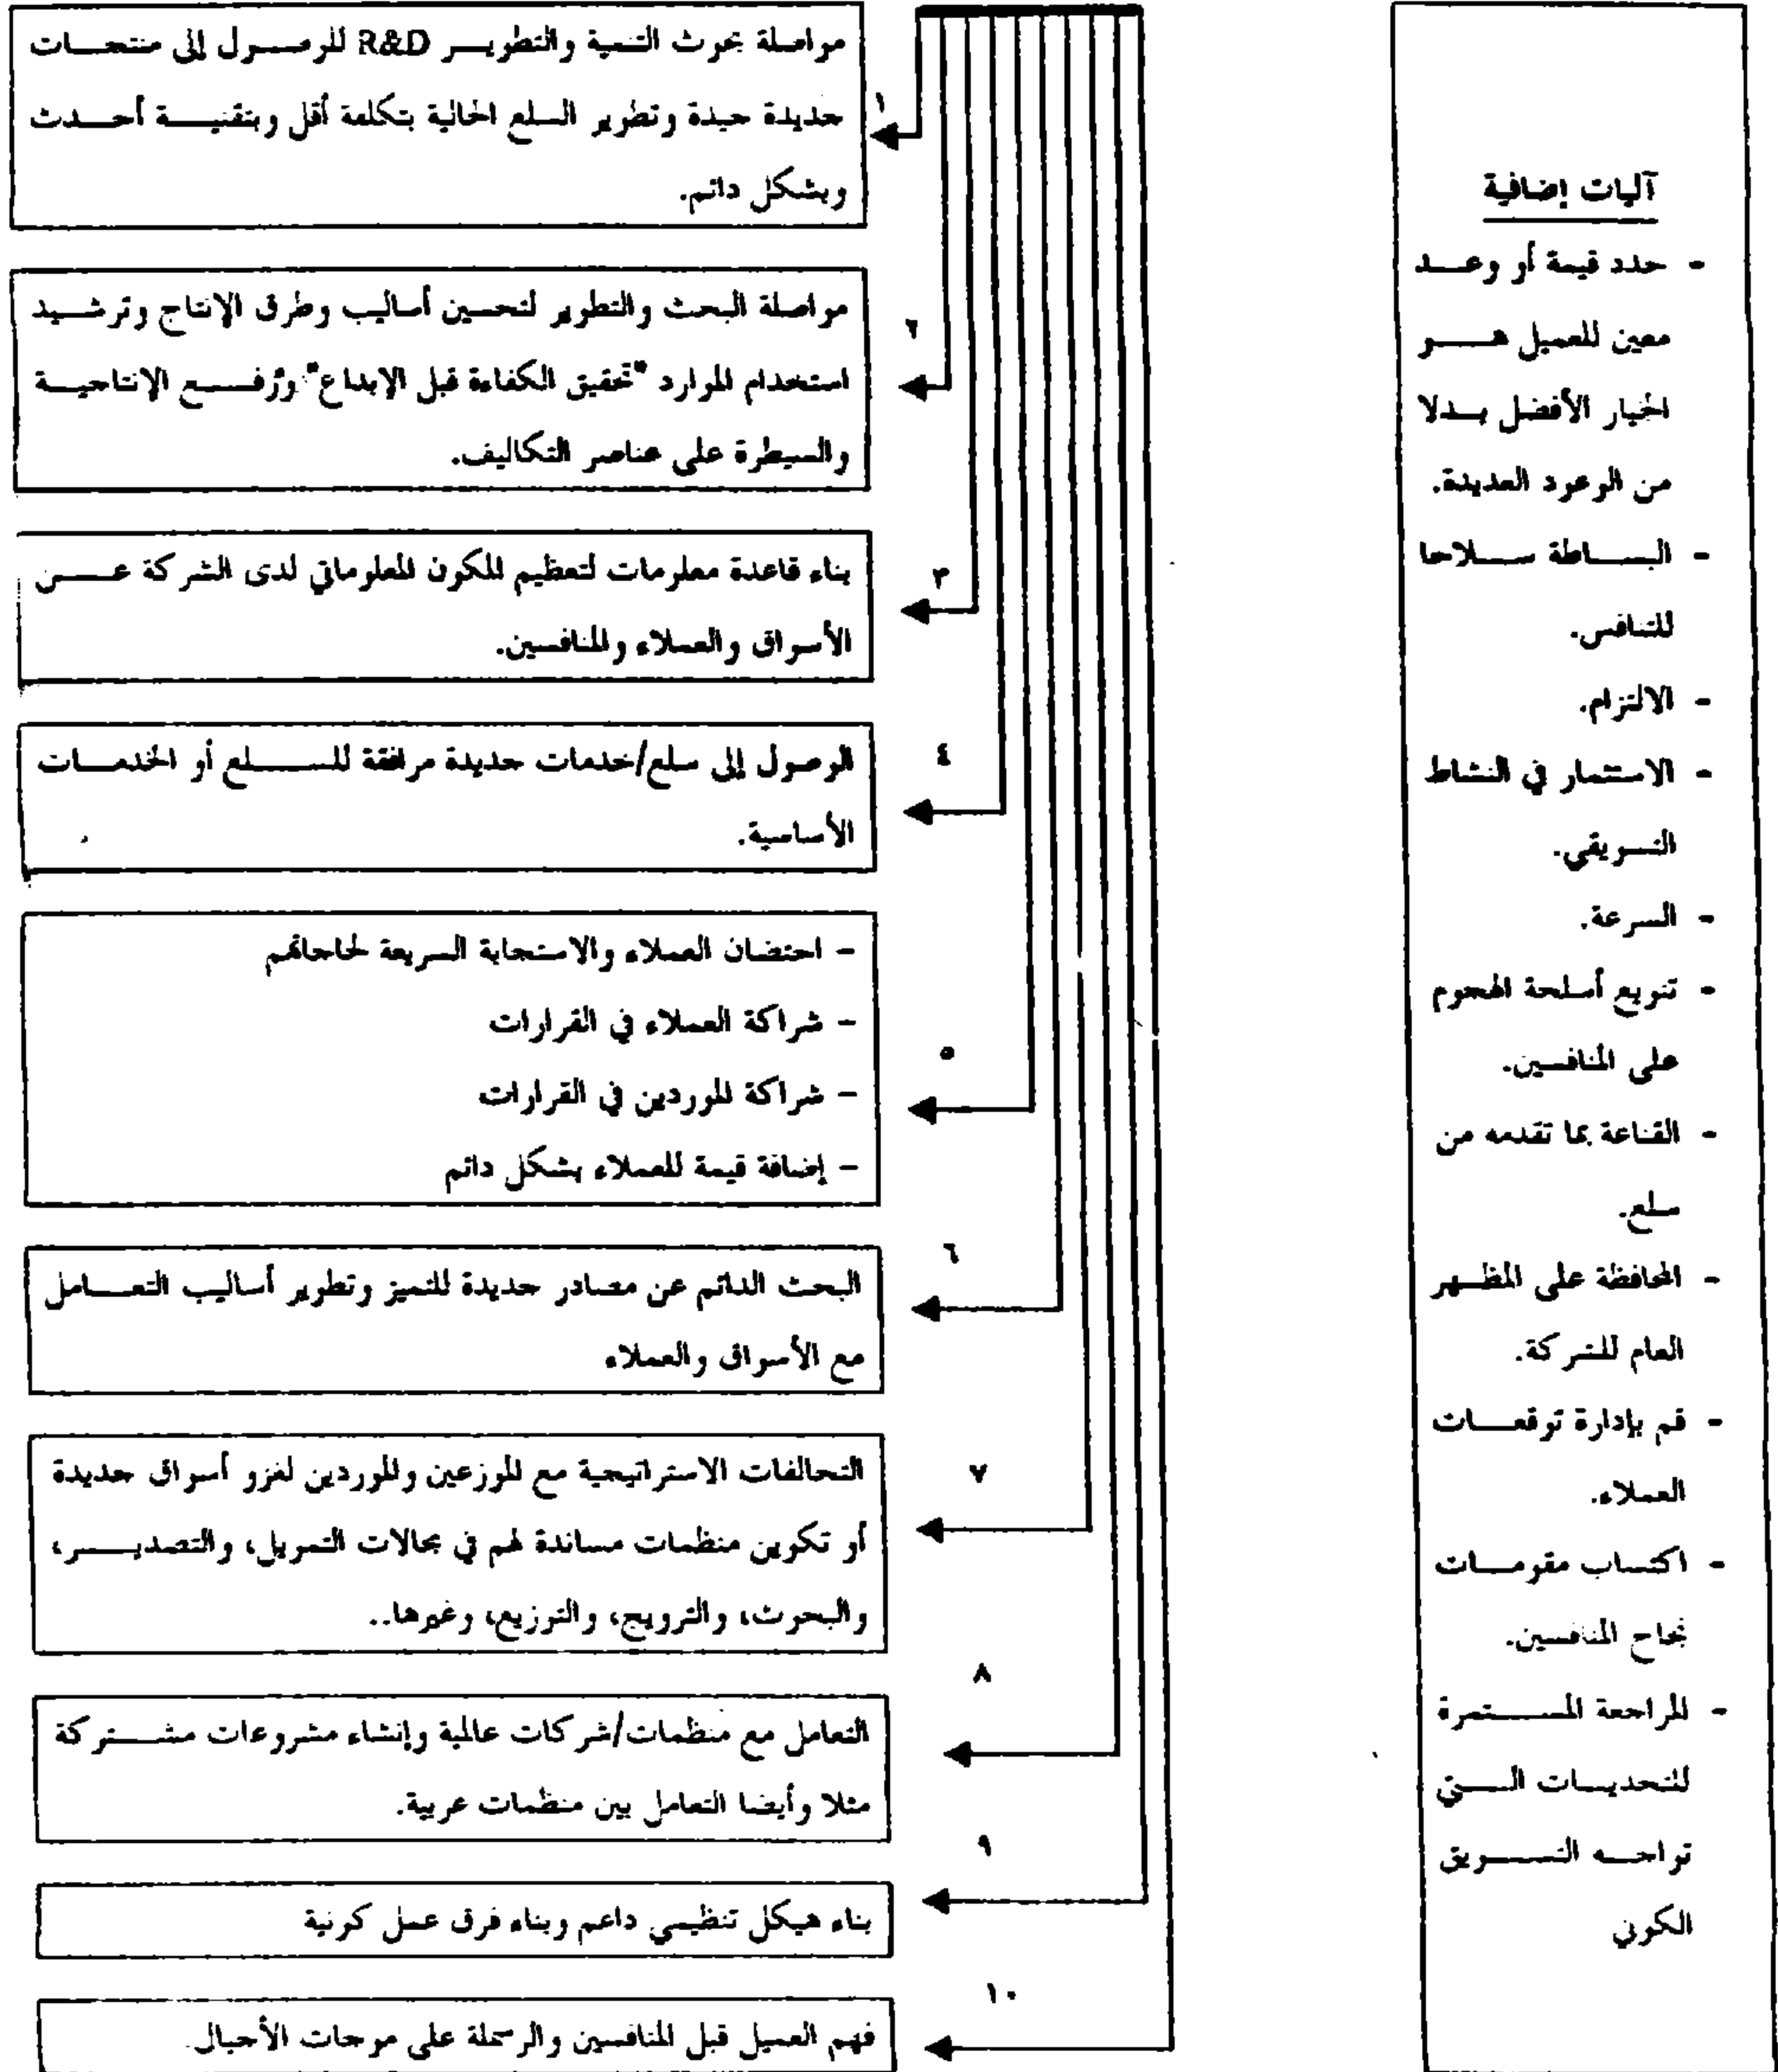 آليات إضافية
- حدد قيمة أو وعد
معين للعميل هو
الخيار الأفضل بدلا
من الوعود العديدة.
- البساطة سلاحا
للتنافس.
- الالتزام.
- الاستثمار في النشاط
التسويقي.
- السرعة.
- تنويع أسلحة الهجوم
على المنافسين.
- القناعة بما تقدمه من
سلع.
- المحافظة على المظهر
العام للشركة.
- قم بإدارة توقعات
العملاء.
- اكتساب مقومات
نجاح المنافسين.
- المراجعة المستمرة
للتحديات التي
تواجه التسويق
الكوني
١
مواصلة بحوث التنمية والتطوير R&D للوصول إلى منتجات
جديدة جيدة وتطوير السلع الحالية بتكلفة أقل وبتقنية أحدث
وبشكل دائم.
٢
مواصلة البحث والتطوير لتحسين أساليب وطرق الإنتاج وترشيد
استخدام الموارد "تحقيق الكفاءة قبل الإبداع" ورفع الانتاجية
والسيطرة على عناصر التكاليف.
٣
بناء قاعدة معلومات لتعظيم المكون المعلوماتي لدى الشركة عن
الأسواق والعملاء والمنافسين.
٤
الوصول إلى سلع/خدمات جديدة مرافقة للسلع أو الخدمات
الأساسية.
٥
- احتضان العملاء والاستجابة السريعة لحاجاتهم
- شراكة العملاء في القرارات
- شراكة الموردين في القرارات
- إضافة قيمة للعملاء بشكل دائم
٦
البحث الدائم عن مصادر جديدة للتميز وتطوير أساليب التعامل
مع الأسواق والعملاء
٧
التحالفات الاستراتيجية مع الموزعين والموردين لغزو أسواق جديدة
أو تكوين منظمات مساندة لهم في مجالات التمويل، والتصدير،
والبحوث، والترويج، والتوزيع، وغيرها..
٨
التعامل مع منظمات/شركات عالمية وإنشاء مشروعات مشتركة
مثلا وأيضا التعامل بين منظمات عربية.
٩
بناء هيكل تنظيمي داعم وبناء فرق عمل كونية
١٠
فهم العميل قبل المنافسين والرسملة على موجات الأجيال.